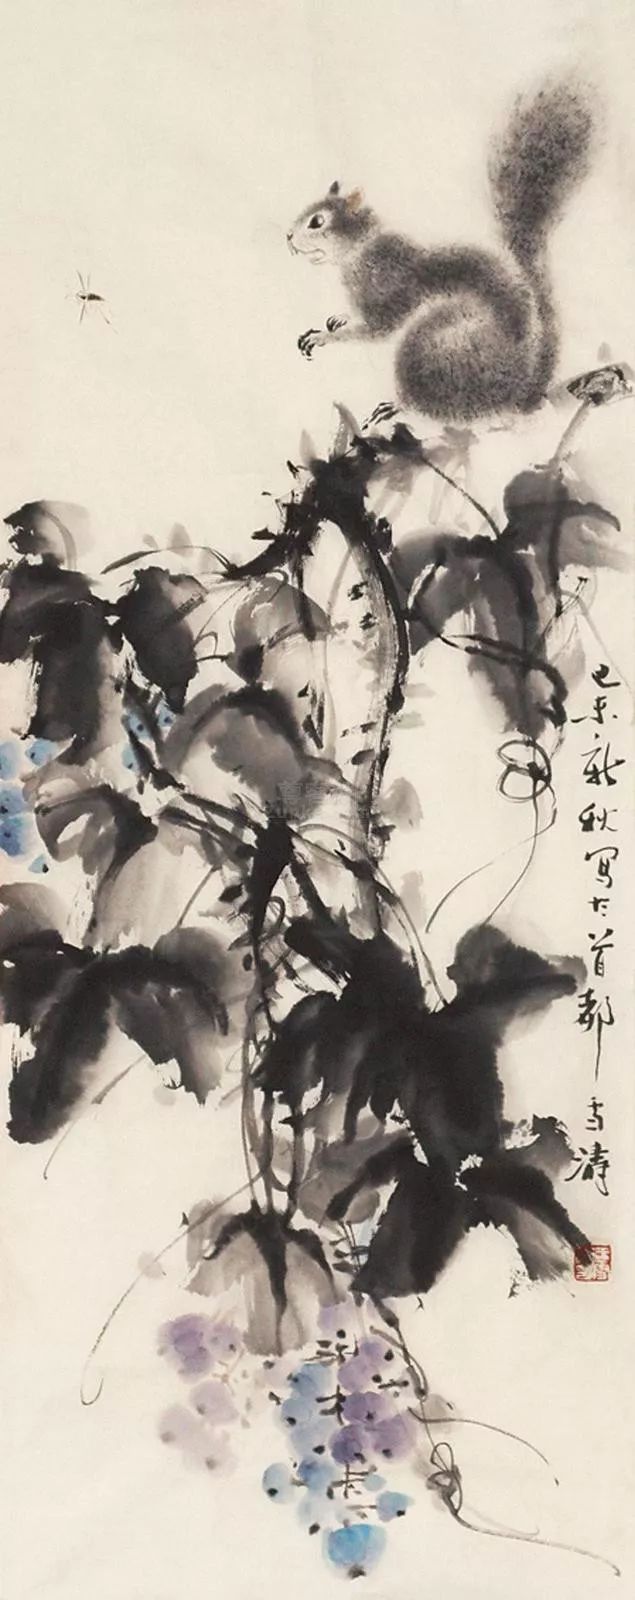 己未新秋写于首都
雪涛